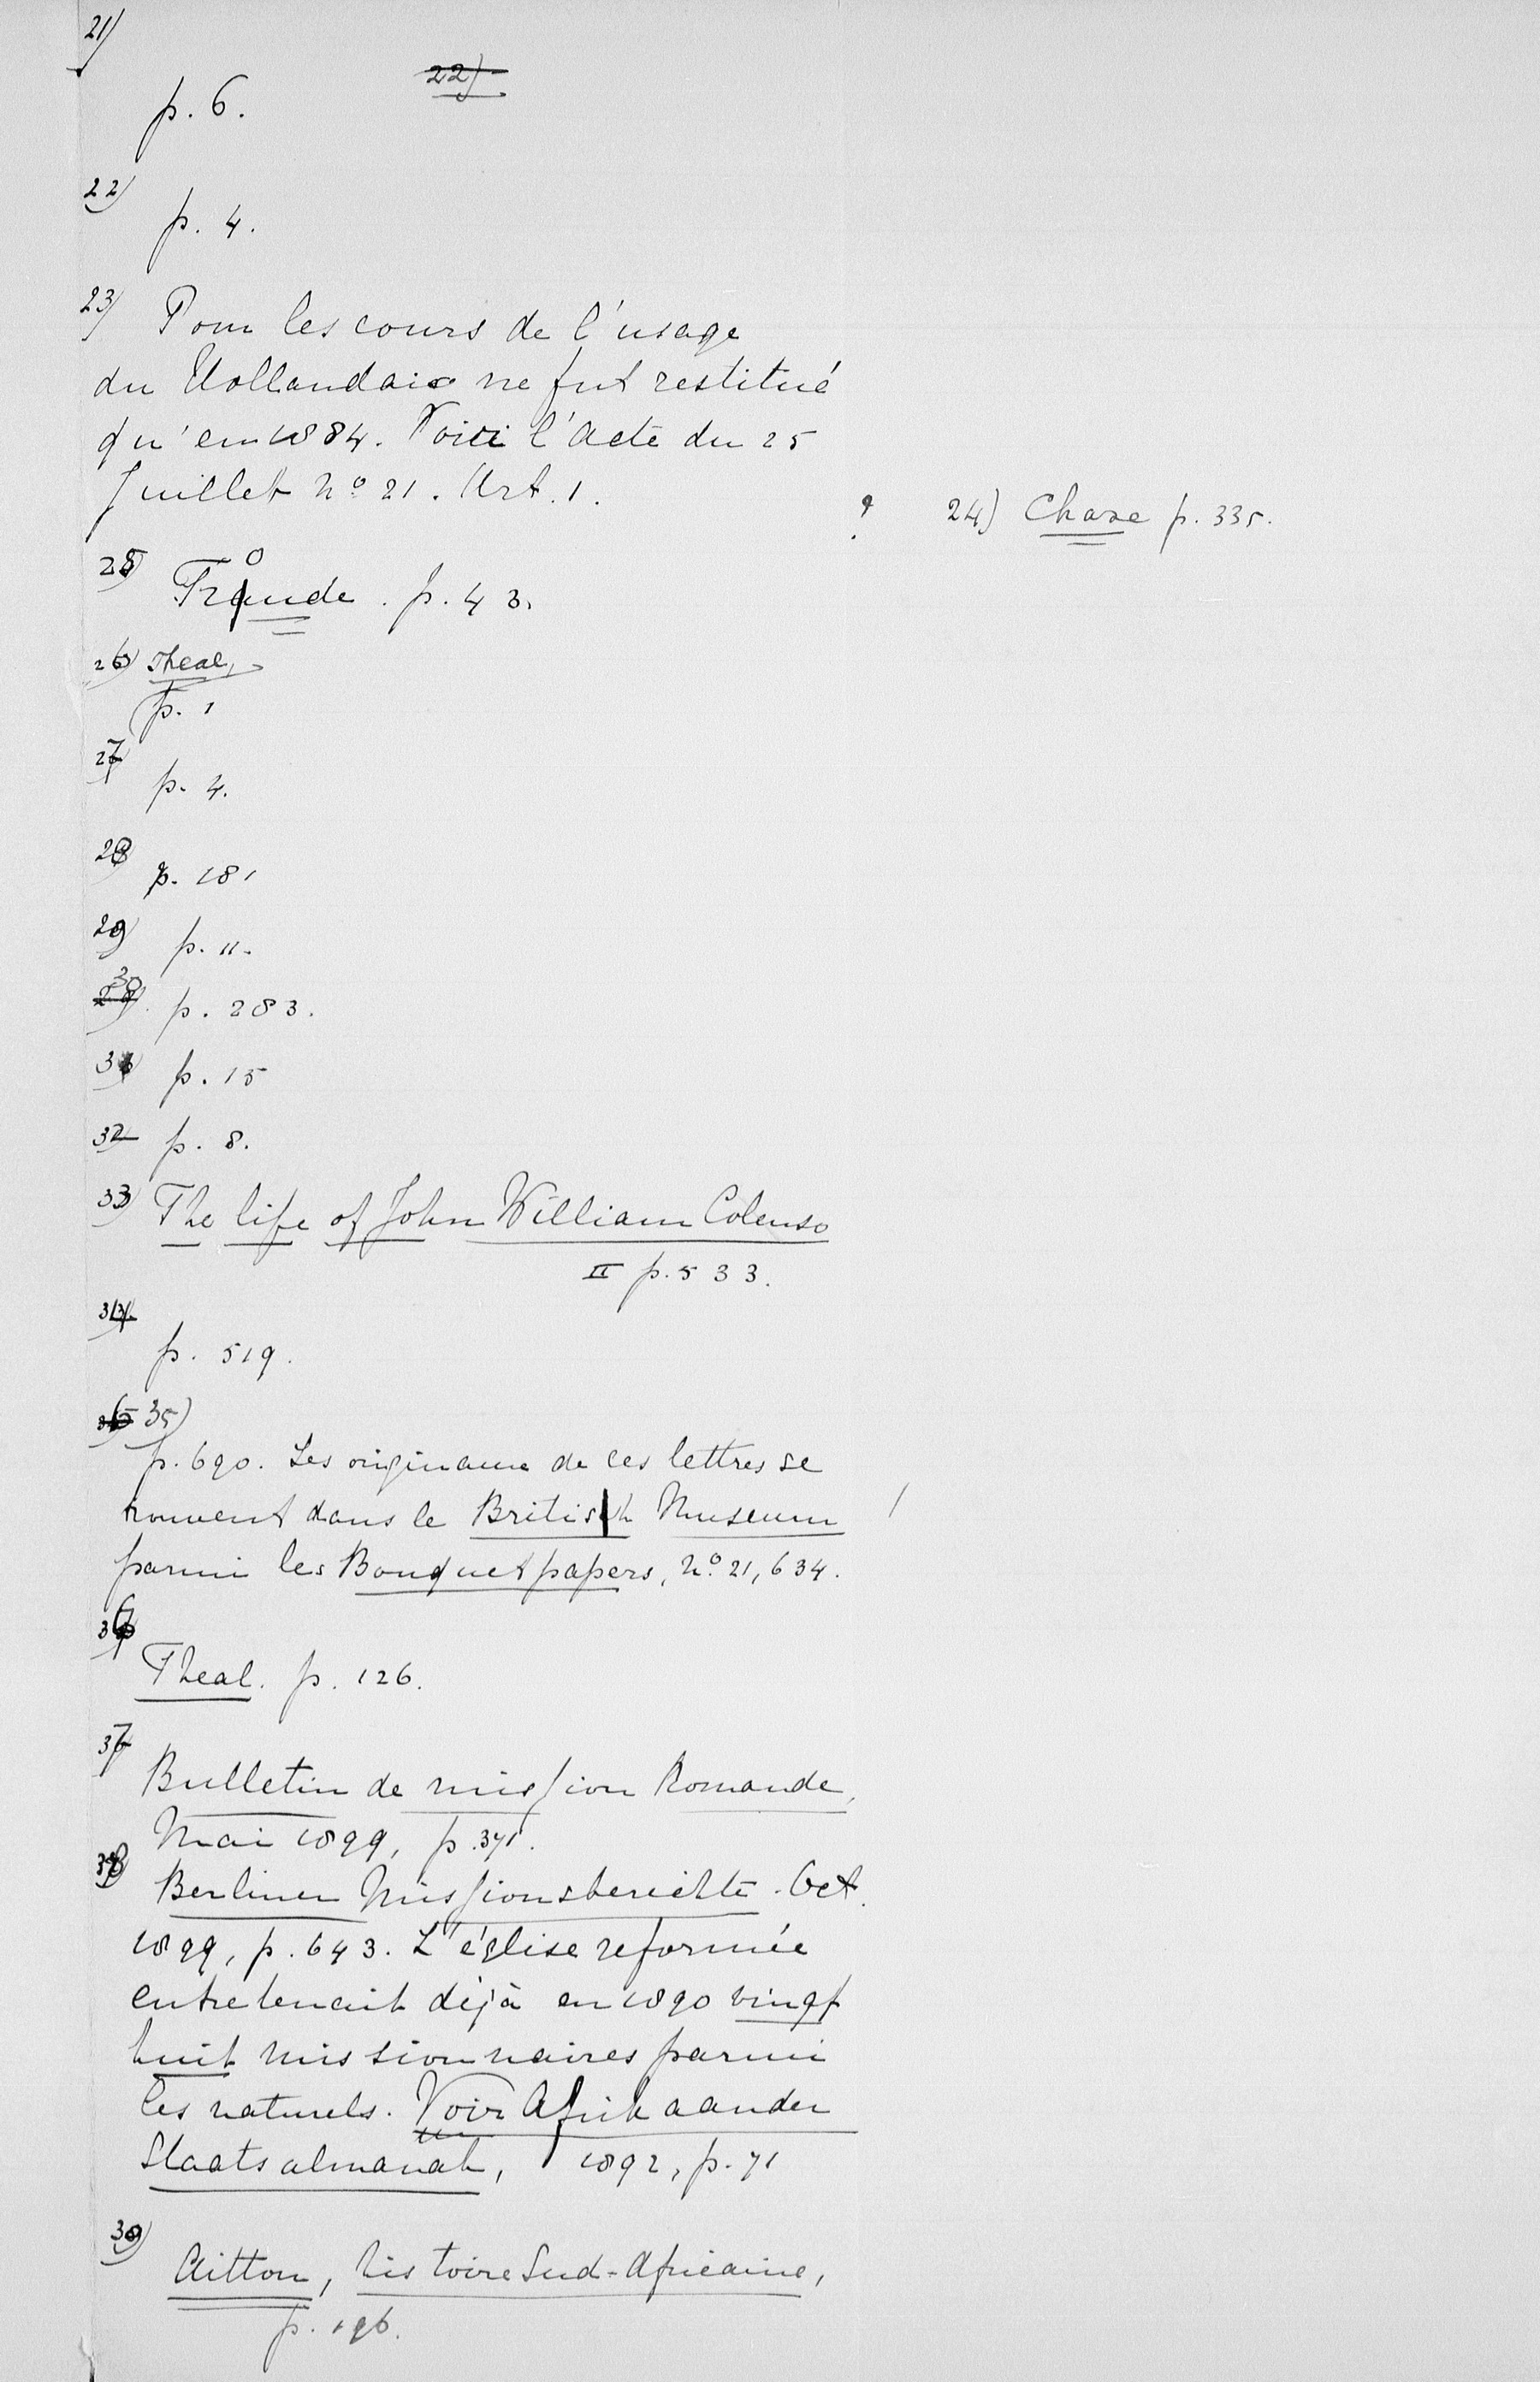 21)
22)
p. 6.
22)
p. 4.
23) Pour les cours de l'usage
du Hollandais ne fut restitué
qu'en 1884. Voici l'acte du 25
Juillet No 21. Art. 1.
? 24) Chase p. 335.
25) Froude. p. 43.
26) Theal,
p. 1
27)
p. 4.
28)
p. 181
29)
p. 11.
30) p. 283.
31) p. 15
32 p. 8.
33) The life of John William Colenso
II p. 533.
34
p. 519.
35)
p. 690. Les originaux de ces lettres se
trouvent dans le British Museum /
parmi les Bouquet papers, No 21,634.
36)
Theal. p. 126.
37
Bulletin de mission Romande,
Mai 1899, p. 371.
38)
Berliner Missionsberichte. Oct.
1899, p. 643. L'église reformée
entretenait déjà en 1890 vingt
huit missionnaires parmi
les naturels. Voir Afrikaander
Staatsalmanak, 1892, p. 71
39)
Aitton, histoire Sud-Africaine,
p. 196.